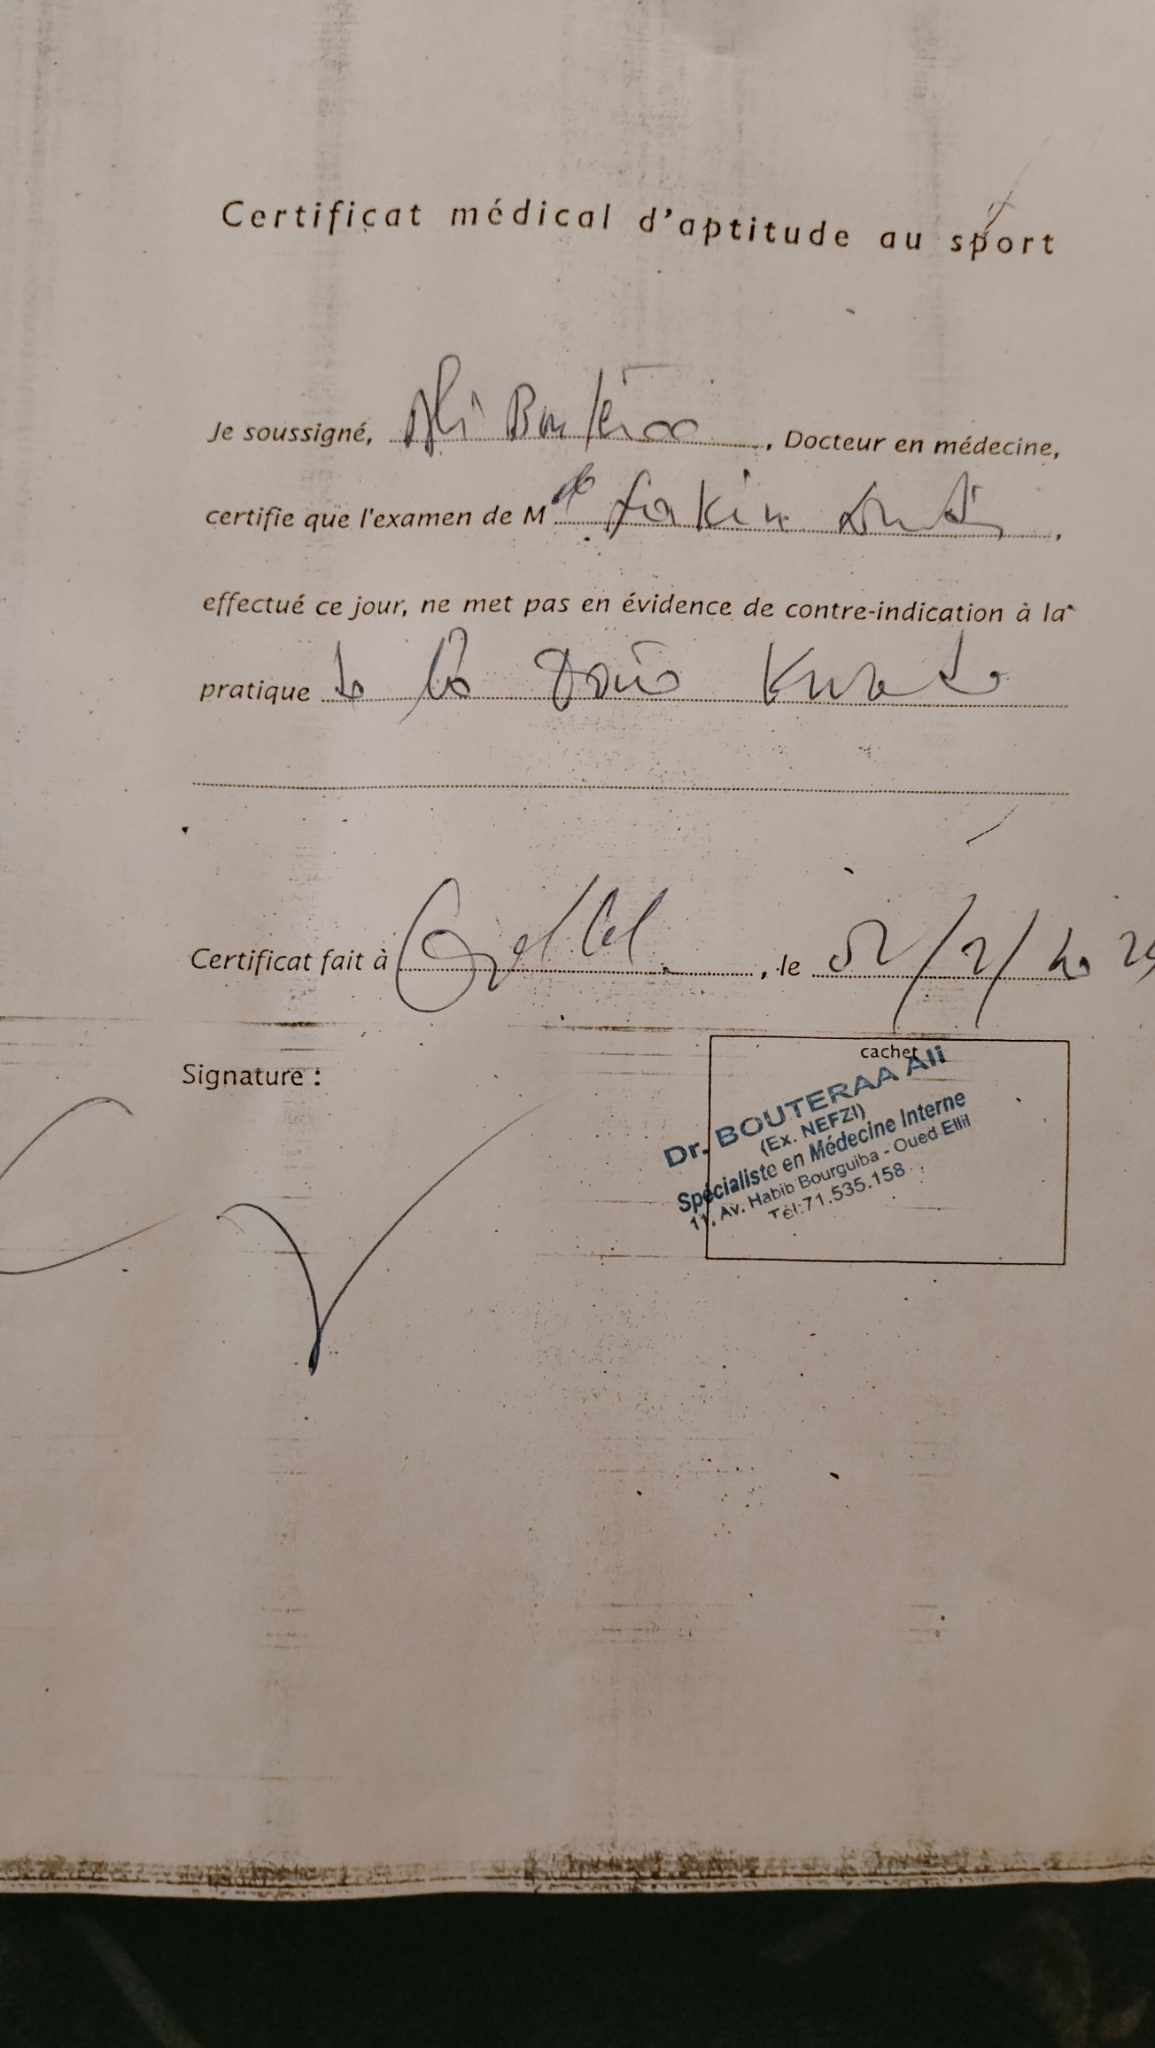 Certificat médical d'aptitude au sport
Je soussigné, Ali Bouteraa, Docteur en médecine,
certifie que l'examen de M
effectué ce jour, ne met pas en évidence de contre-indication à la
pratique de la
Certificat fait à, le
Signature :
cachet
Dr. BOUTERAA Ali
(Ex. NEFZI)
Spécialiste en Médecine Interne
11, Av. Habib Bourguiba - Oued Ellil
Tél:71.535.158